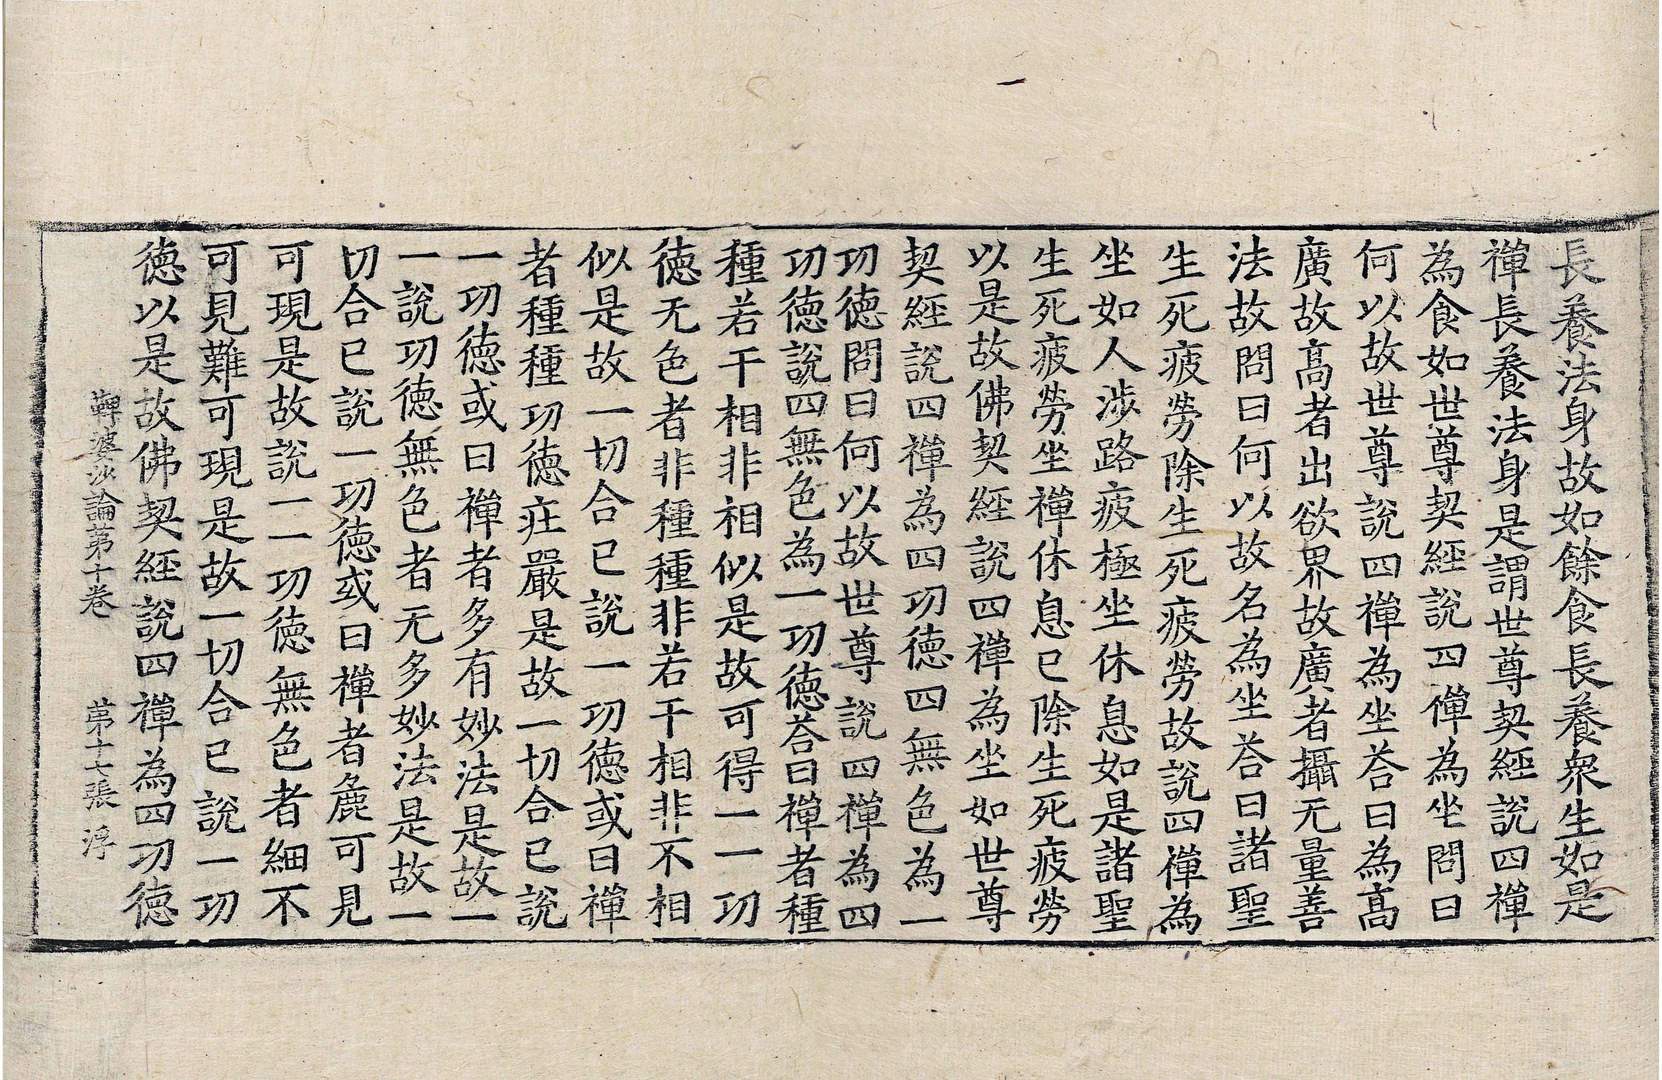 長養法身故如餘食長養衆生如是
禪長養法身是謂世尊契經說四禪
為食如世尊契經說四禪為坐問曰
何以故世尊說四禪為坐荅曰為高
廣故高者出欲界故廣者攝无量善
法故問曰何以故名為坐荅曰諸聖
生死疲勞除生死疲勞故說四禪為
坐如人涉路疲極坐休息如是諸聖
生死疲勞坐禪休息已除生死疲勞
以是故佛契經說四禪為坐如世尊
契經說四禪為四功德四無色為一
功德問曰何以故世尊說四禪為四
功德說四無色為一功德荅曰禪者種
種若干相非相似是故可得一一功
德无色者非種種非若干相非不相
似是故一切合已說一功德或曰禪
者種種功德莊嚴是故一切合已說
一功德或曰禪者多有妙法是故一
一說功德無色者无多妙法是故一
切合已說一功德或曰禪者麁可見
可現是故說一一功德無色者細不
可見難可現是故一切合已說一功
德以是故佛契經說四禪為四功德
鞞婆沙論第十卷 第十七張 浮